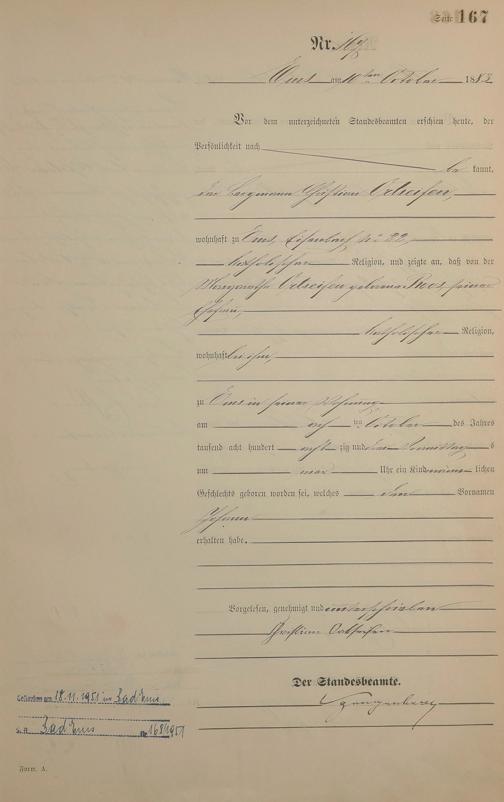 Seite 167
Nr.
Ems am 10ten October 188
Vor dem unterzeichneten Standesbeamten erschien heute, der
Persönlichkeit nach
be kannt,
der Bergmann Christian Ortseifen,
wohnhaft zu Ems, Eisenbach No 22,
katholischer Religion, und zeigte an, daß von der
Margaretha Ortseifen geborene Roos seiner
Ehefrau,
katholischer Religion,
wohnhaft bei ihm,
zu Ems in seiner Wohnung
am ten October des Jahres
tausend acht hundert acht zig und drei Vormittags
um Uhr ein Kind männ lichen
Geschlechts geboren worden sei, welches den Vornamen
Johann
erhalten habe.
Vorgelesen, genehmigt und unterschrieben
Christian Ortseifen
Der Standesbeamte.
Gestorben am 18.11.1951 in Bad Ems
S. A. Bad Ems Nr. 168/1951
Form. A.